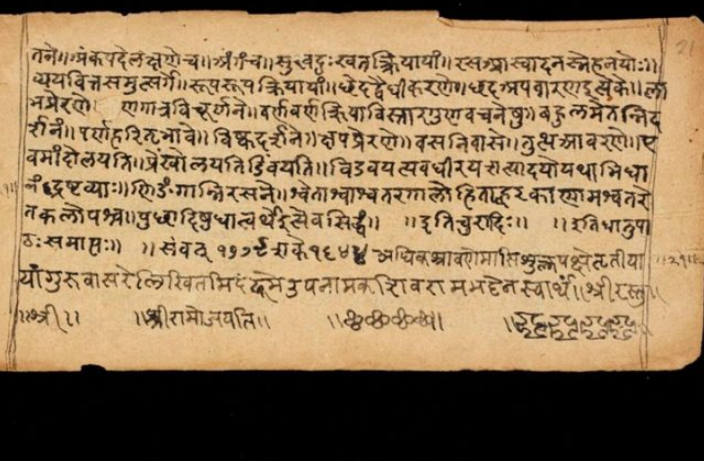 तने॥ अंकपदेलक्षणेच॥ अंगच॥ सुखदुःखतत्क्रियायां॥ रसआस्वादनस्नेहनयोः॥
व्ययवित्तसमुत्सर्गे॥ रूपरूपक्रियायां॥ छेदद्वैधीकरणे॥ छदअपवारणइत्येके॥ ला
भप्रेरणे॥ व्रणगात्रविचूर्णने॥ वर्णवर्णक्रियाविस्तारगुणवचनेषु॥ बहुलमेतन्निद
र्शनं॥ पर्णहरितभावे॥ विष्कदर्शने॥ क्षपप्रेरणे॥ वसनिवासे॥ तुत्थआवरणे॥ ए
वमांदोलयति॥ प्रेंखोलयति विडंबयति॥ अवधीरय
द्रष्टव्याः॥ णिङंगान्निरसने॥ श्वेताश्वाश्वतरगालोडिताह्वरकाणामश्वतरे
तकलोपश्च॥ पुछादिषुधात्वर्थेइत्येवसिद्धं॥ ॥इतिचुरादिः॥ ॥इतिधातुपा
ठःसमाप्तः॥ ॥संवत् शके अधिकश्रावणेमासिशुक्लपक्षेतृतीया
यांगुरुवासरेलिखितमिदं उपनामकशिवरामभट्टेनस्वार्थं॥ श्रीरस्तु॥
॥श्री॥ ॥श्रीरामोजयति॥